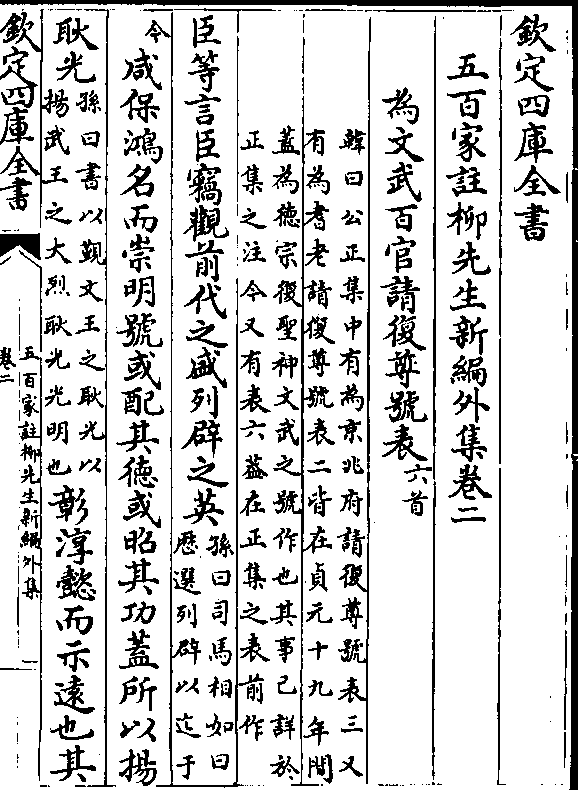 欽定四庫全書
五百家註柳先生新編外集卷二
為文武百官請復尊號表六首
韓曰公正集中有為京兆府請復尊號表三又
有為耆老請復尊號表二皆在貞元十九年間
蓋為徳宗復聖神文武之號作也其事已詳於
正集之注今又有表六蓋在正集之表前作
臣等言臣竊觀前代之盛列辟之英
孫曰司馬相如曰
歴選列辟以迄于
今
咸保鴻名而崇明號或配其徳或昭其功蓋所以揚
耿光
孫曰書以覲文王之耿光以
揚武王之大烈耿光光明也
彰淳懿而示遠也其
欽定四庫全書
五百家註柳先生新編外集
卷二
一